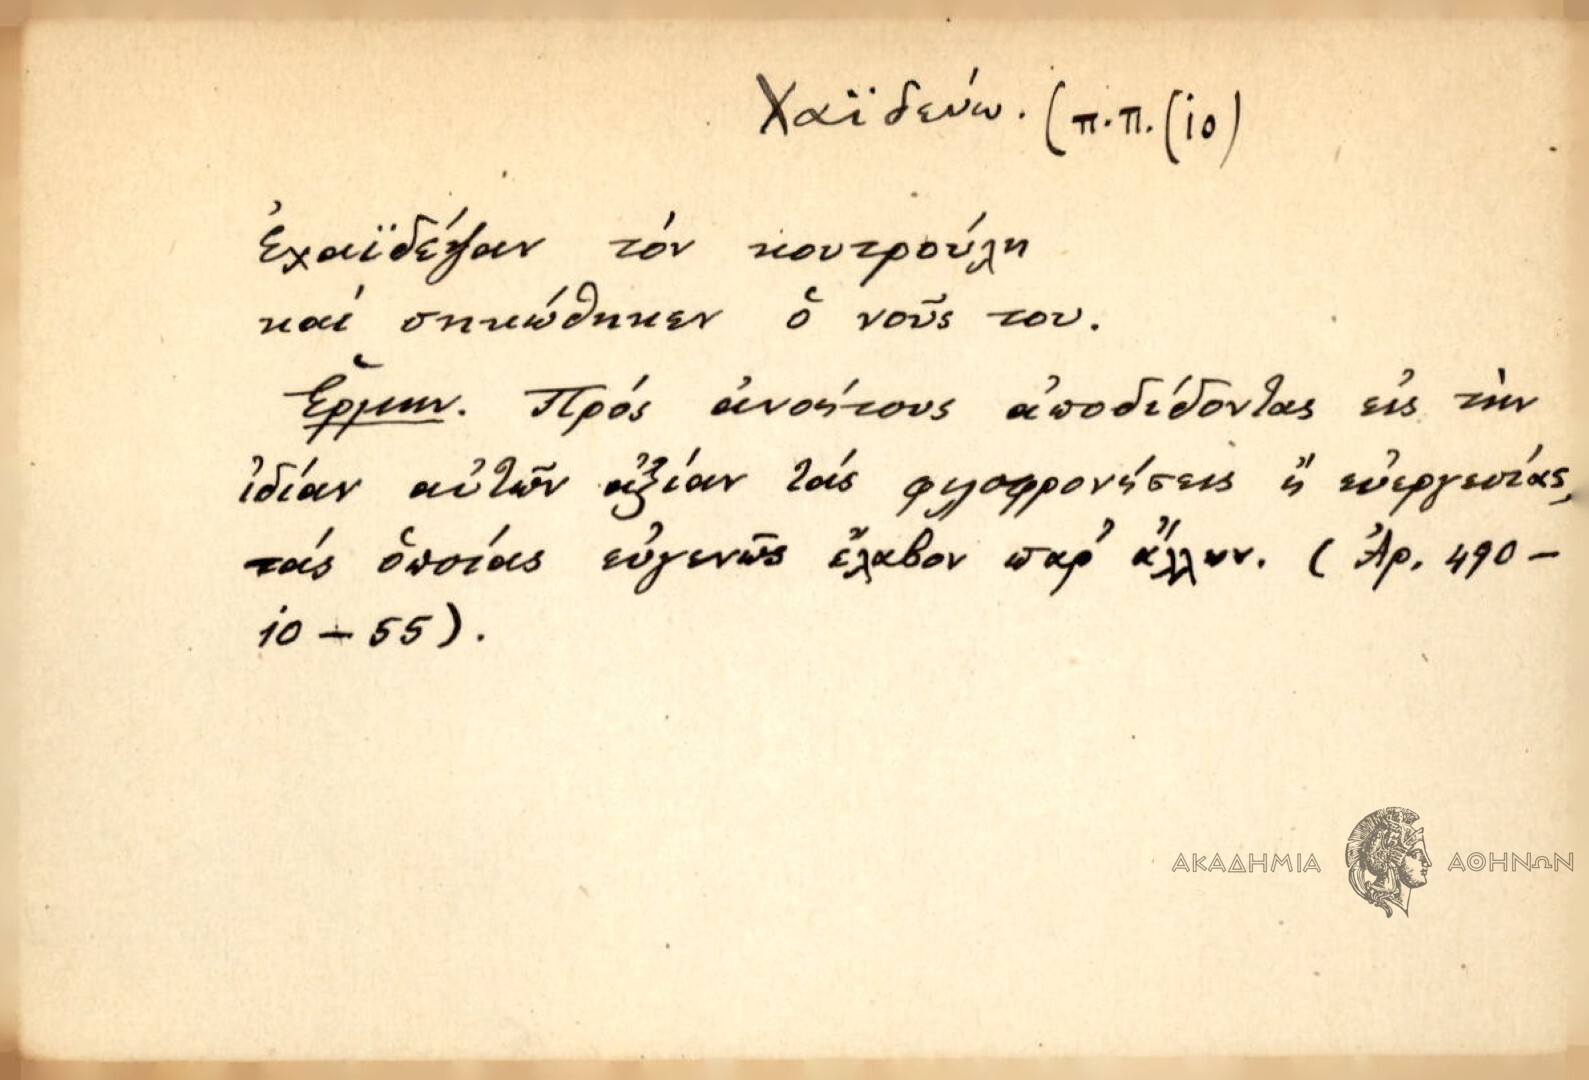 Χαϊδεύω. (π.π. (ιο)
ἐχαϊδέψαν τόν κουτρούλη
καί σηκώθηκεν ὁ νοῦς του.
Ἑρμην. Πρός ἀνοήτους ἀποδίδοντας εἰς τὴν
ἰδίαν αὐτῶν ἀξίαν τάς φιλοφρονήσεις ἤ εὐεργεσίας,
τάς ὁποίας εὐγενῶς ἔλαβον παρ' ἄλλων. (Ἀρ. 490 –
10 – 55).
ΑΚΑΔΗΜΙΑ ΑΘΗΝΩΝ